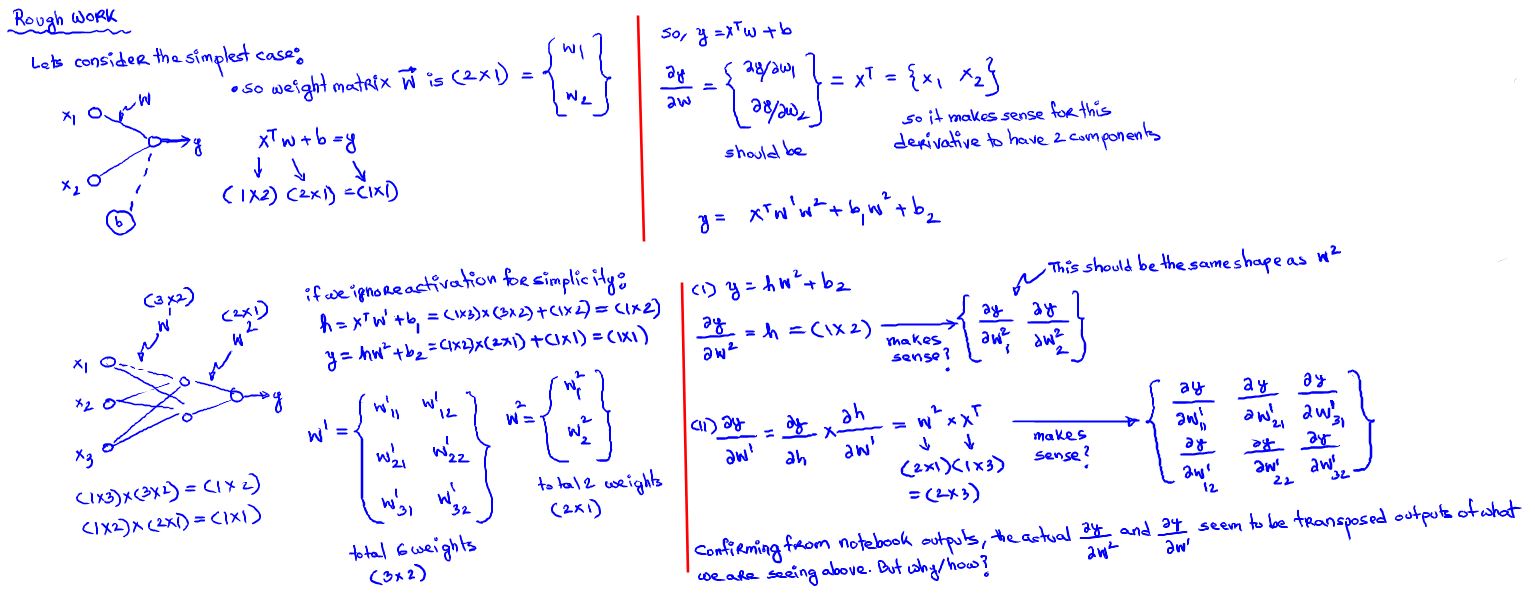 Rough WORK
Lets consider the simplest case:
• so weight matrix W⃗ is (2×1) = {w1 w2}
x1 W
x2 y
b
xᵀw + b = y
(1×2) (2×1) = (1×1)
so, y = xᵀw + b
∂y/∂w = {∂y/∂w1 ∂y/∂w2} = xᵀ = {x1 x2}
should be
so it makes sense for this
derivative to have 2 components
y = xᵀw¹w² + b1w² + b2
(3×2) W¹
(2×1) W²
x1
x2 y
x3
(1×3)×(3×2) = (1×2)
(1×2)×(2×1) = (1×1)
if we ignore activation for simplicity:
h = xᵀw¹ + b1 = (1×3)×(3×2)+(1×2) = (1×2)
y = hw² + b2 = (1×2)×(2×1)+(1×1) = (1×1)
w¹ = {w¹11 w¹12
w¹21 w¹22
w¹31 w¹32}
total 6 weights
(3×2)
w² = {w²1
w²2}
total 2 weights
(2×1)
This should be the same shape as w²
(I) y = hw² + b2
∂y/∂w² = h = (1×2) makes sense? {∂y/∂w²1 ∂y/∂w²2}
(II) ∂y/∂w¹ = ∂y/∂h × ∂h/∂w¹ = w² × xᵀ
(2×1)(1×3)
= (2×3)
makes sense?
{∂y/∂w¹11 ∂y/∂w¹21 ∂y/∂w¹31
∂y/∂w¹12 ∂y/∂w¹22 ∂y/∂w¹32}
Confirming from notebook outputs, the actual ∂y/∂w² and ∂y/∂w¹ seem to be transposed outputs of what
we are seeing above. But why/how?